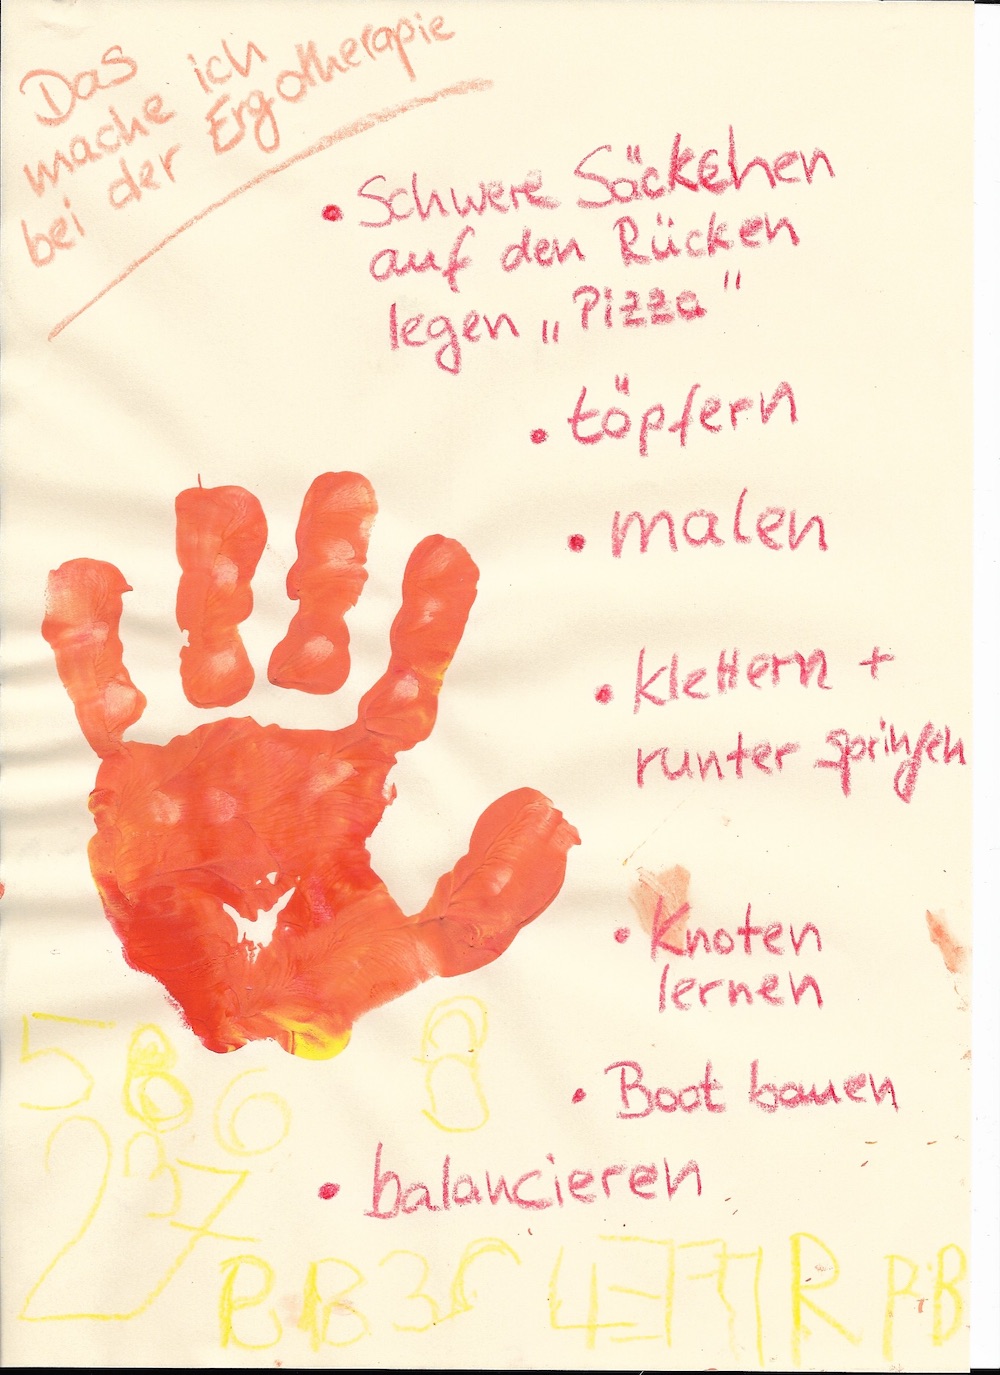 Das
mache ich
bei der Ergotherapie
• Schwere Säckchen
auf den Rücken
legen „Pizza"
• töpfern
• malen
• klettern +
runter springen
• Knoten
lernen
• Boot bauen
• balancieren
5 8 6 8
2 3 7
B B 3
R